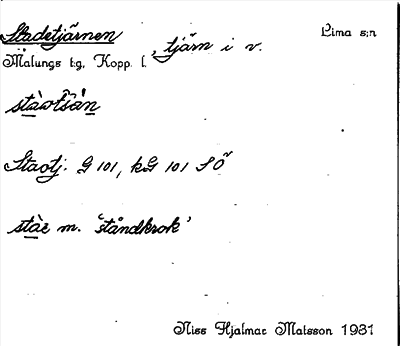 Stadetjärnen, tjärn i v. Lima s:n
Malungs t:g, Kopp. l.
Staotj. G 101, kG 101 SÖ
m. 'ståndkrok'
Niss Hjalmar Matsson 1931